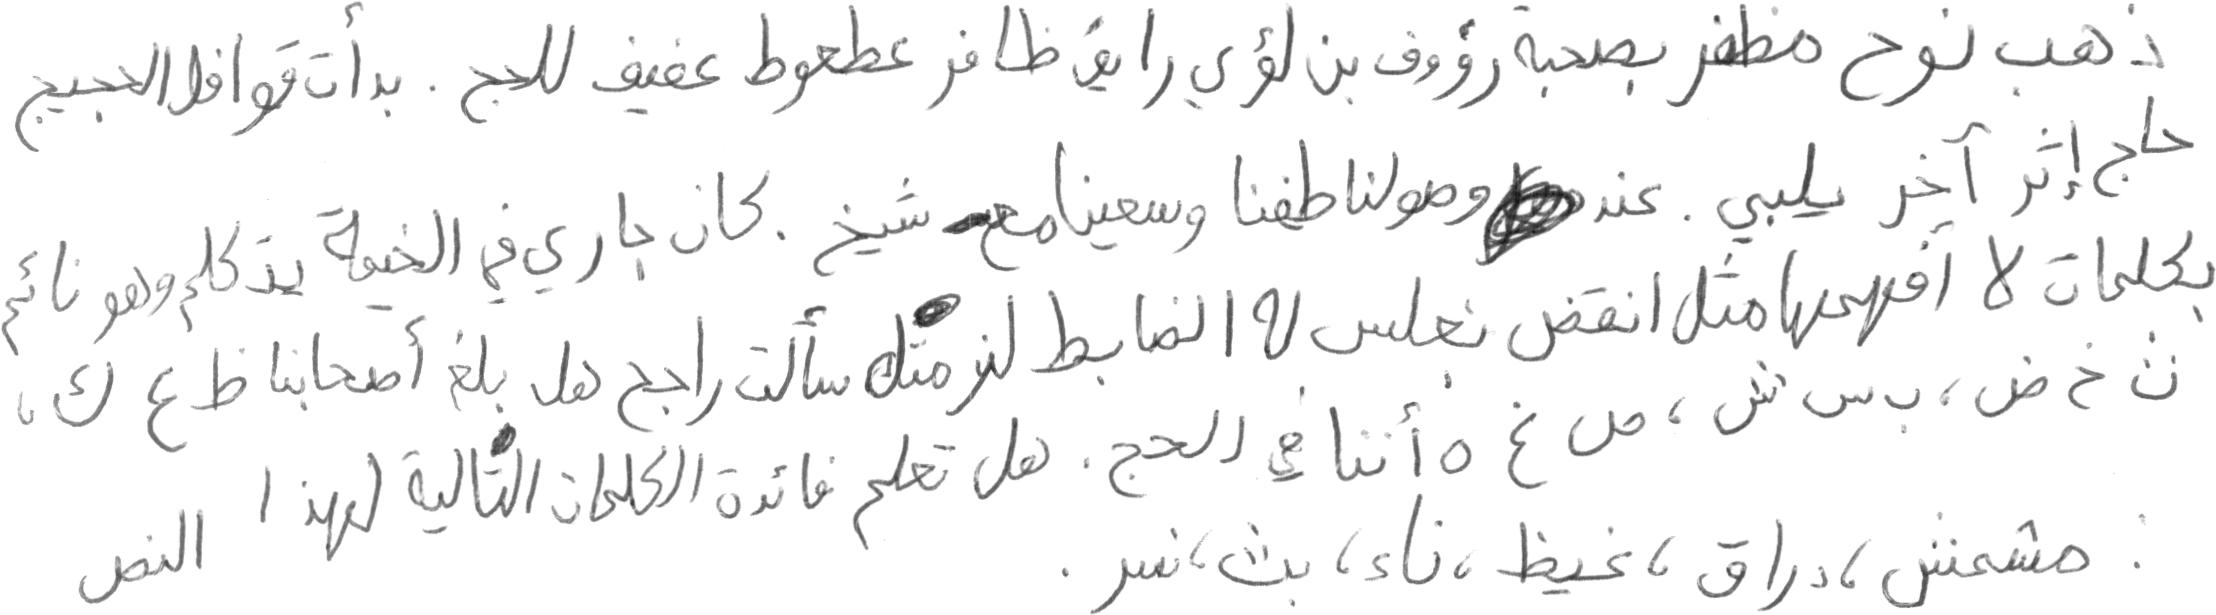 ذهب نوح مظفر بصحبة رؤوف بن لؤي رايق ظافر عطعوط عفيف للحج . بدأت قوافل الحجيج
حاج إثر آخر يلبي . عند وصولنا طفنا وسعينا مع شيخ . كان جاري في الخيمة يتكلم وهو نائم
بكلمات لا أفهمها مثل انقض نعلس لا الضابط لنز مثلك سألت راجح هل بلغ أصحابنا ظ ع ك ،
ن خ ض ، ب س ش ، ص غ ه أننا في الحج . هل تعلم فائدة الكلمات التالية لهذا النص
: مشمش ، دراق ، غيظ ، ناء ، بث ، نسر .